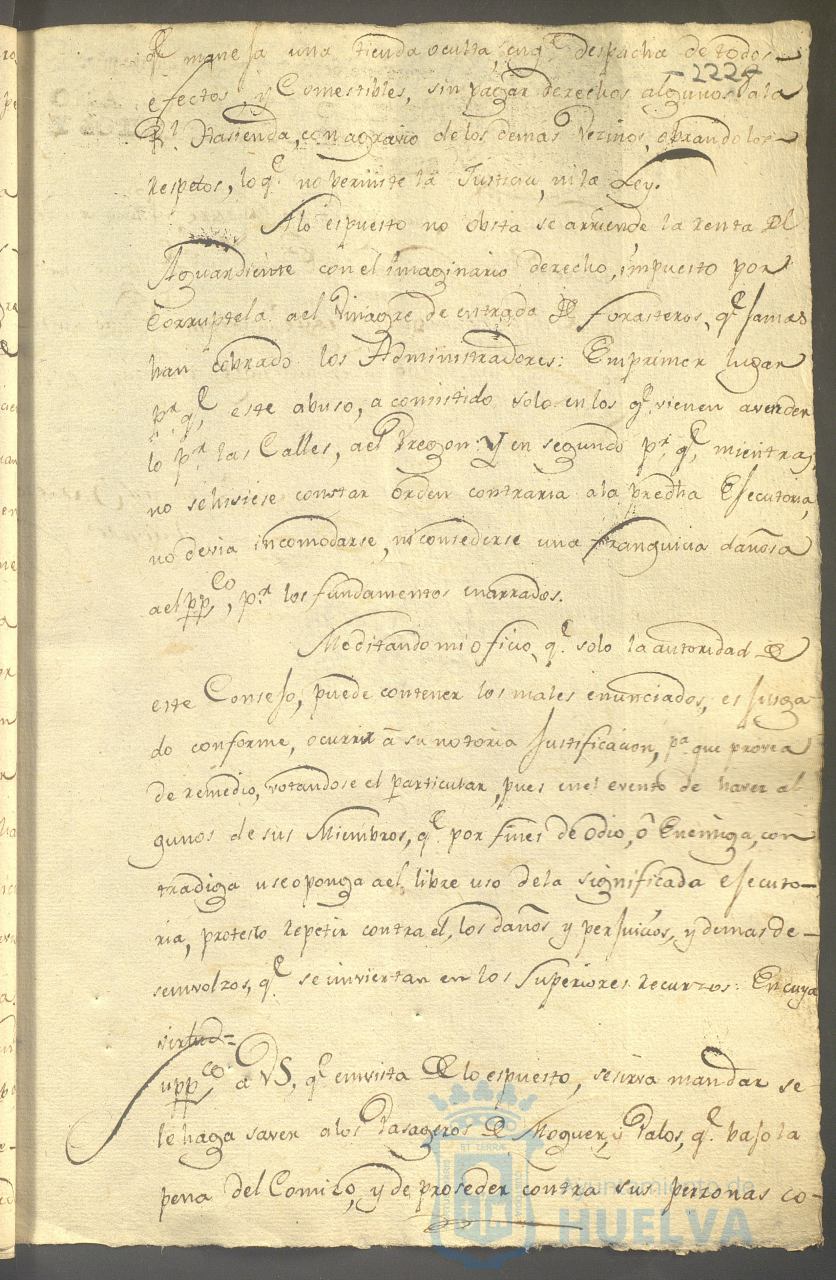 qᵉ manesa una tienda oculta, enqᵉ despacha de todos
-222-
efectos, y Comestibles, sin pagar derechos algunos ala
Rˡ Hasienda, con agravio delos demas Vezinos, obrando los
respetos, loqᵉ no permite la Justicia, nila Ley.
Alo espuesto no obsta se arriende la renta Del
Aguardiente con el imaginario derecho, impuesto por
Corruptela ael Vinagre de entrada De forasteros, qᵉ jamas
han cobrado los Administradores: Emprimer lugar
pʳ qᵉ este abuso, a consistido solo en los qᵉ vienen avender
lo pʳ las Calles, ael Pregon: Y en segundo pʳ qᵉ mientras
no sehisiese constar orden contraria ala predha Esecutoria,
no devia incomodarse, ni consederse una franquicia dañosa
ael ppᶜᵒ, pʳ los fundamentos enarrados.
Meditando mi oficio, qᵉ solo la autoridad De
este Consejo, puede contener los males enunciados, es jusga
do conforme, ocurrir â su notoria justificacion, pᵃ que provea
de remedio, votandose el particular, pues enel evento de haver al
gunos de sus Miembros, qᵉ por fines de odio, ô Enemiga, con
tradiga u se oponga ael libre uso dela significada esecuto-
ria, protesto repetir contra el, los daños y perjuicios, y demas de-
semvolzos, qᵉ se inviertan en los Superiores recurzos: En cuya
virtud=
upp ᶜᵒ a VS, qᵉ envista De lo espuesto, se sirva mandar se-
le haga saver alos Pasageros De Moguer, y Palos, qᵉ bajo la
pena del Comizo, y de proseder contra sus perzonas co-
Ayuntamiento de
HUELVA